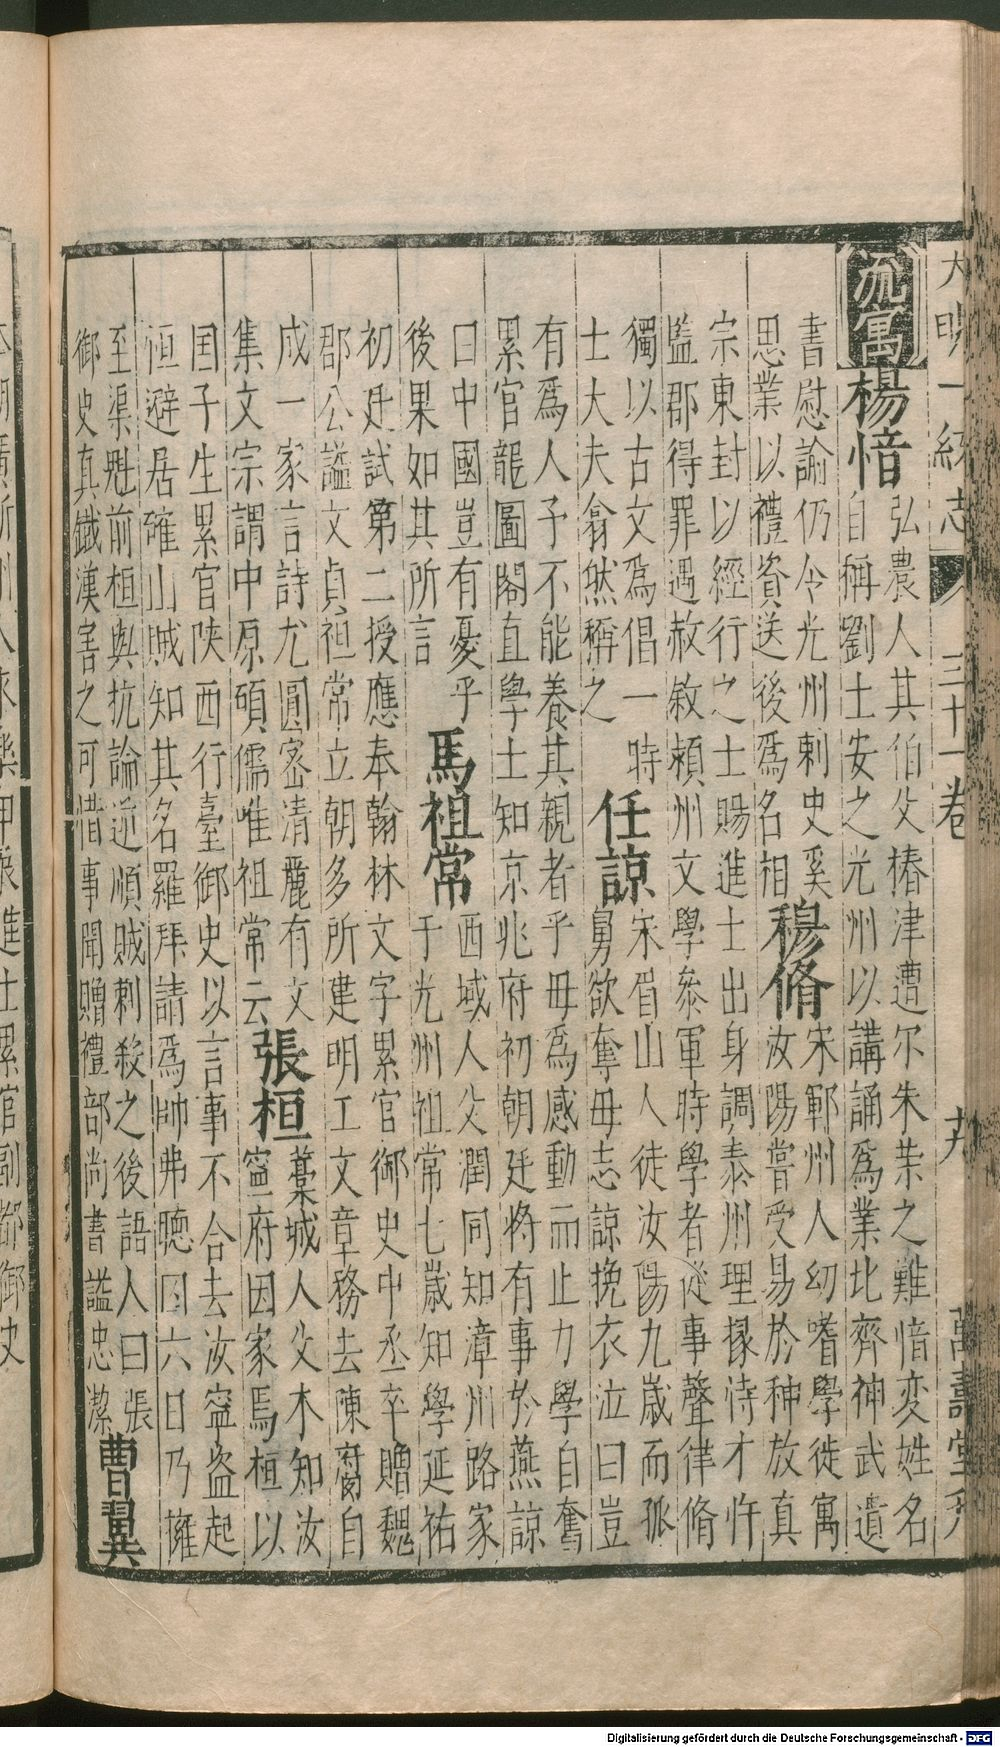 大明一統志 三十一卷 廾 萬壽堂刋
流寓 楊愔
弘農人其伯父椿津遭尔朱荣之難愔变姓名
自稱劉士安之光州以講誦爲業比齊神武遺
書慰諭仍令光州刺史奚
思業以禮資送後爲名相
穆脩
宋鄆州人幼嗜學徙寓
汝陽嘗受易於种放真
宗東封以經行之士賜進士出身調泰州理掾恃才忤
監郡得罪遇赦敘穎州文學叅軍時學者從事聲律脩
獨以古文爲倡一時
士大夫翕然稱之
任諒
宋眉山人徒汝陽九歲而孤
舅欲奪毋志諒挽衣泣曰豈
有爲人子不能養其親者乎毋爲感動而止力學自奮
累官龍圖閣直學士知京兆府初朝廷將有事於燕諒
曰中國豈有憂乎
後果如其所言
馬祖常
西域人父潤同知漳州路家
于光州祖常七歲知學延祐
初廷試第二授應奉翰林文字累官御史中丞卒贈魏
郡公謚文貞祖常立朝多所建明工文章務去陳腐自
成一家言詩尤圓宻清麗有文
集文宗謂中原碩儒唯祖常云
張桓
藁城人父木知汝
寧府因家焉桓以
国子生累官陕西行臺御史以言事不合去汝寧盗起
桓避居確山賊知其名羅拜請爲帥弗聽囚六日乃擁
至渠魁前桓與抗論逆順賊刺殺之後語人曰張
御史真鐵漢害之可惜事聞贈禮部尚書謚忠潔
曹翼
進士累官副都御史
Digitalisierung gefördert durch die Deutsche Forschungsgemeinschaft - DFG